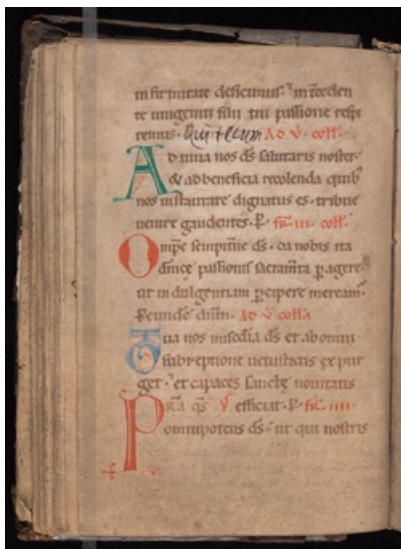 infirmitate deficimus· ⁊ intͤceden
te unigeniti filii tui passione respi
remus· Qui tecum Ad v̄· coll̄·
Adiuua nos dš salutaris noster·
& ad beneficia recolenda quib᷒
nos instaurare dignatus es· tribue
uenire gaudentes· P̱· fr̄· iii· coll̄·
Omp̄s sempit̄ne dš· da nobis ita
dn̄ice passionis sacram̄ta p̱agere·
ut indulgentiam p̱cipere meream᷒·
P̱ eunde᷒ dn̄m· Ad v̄ coll̄a
Tua nos mis̄c̄dia dš et ab omni
subreptione uetustatis expur
get· ⁊ et capaces sancte nouitatis
P̄rā qs̄ efficiat· P̱· fr̄· iiii·
omnipotens dš· ut qui nostris